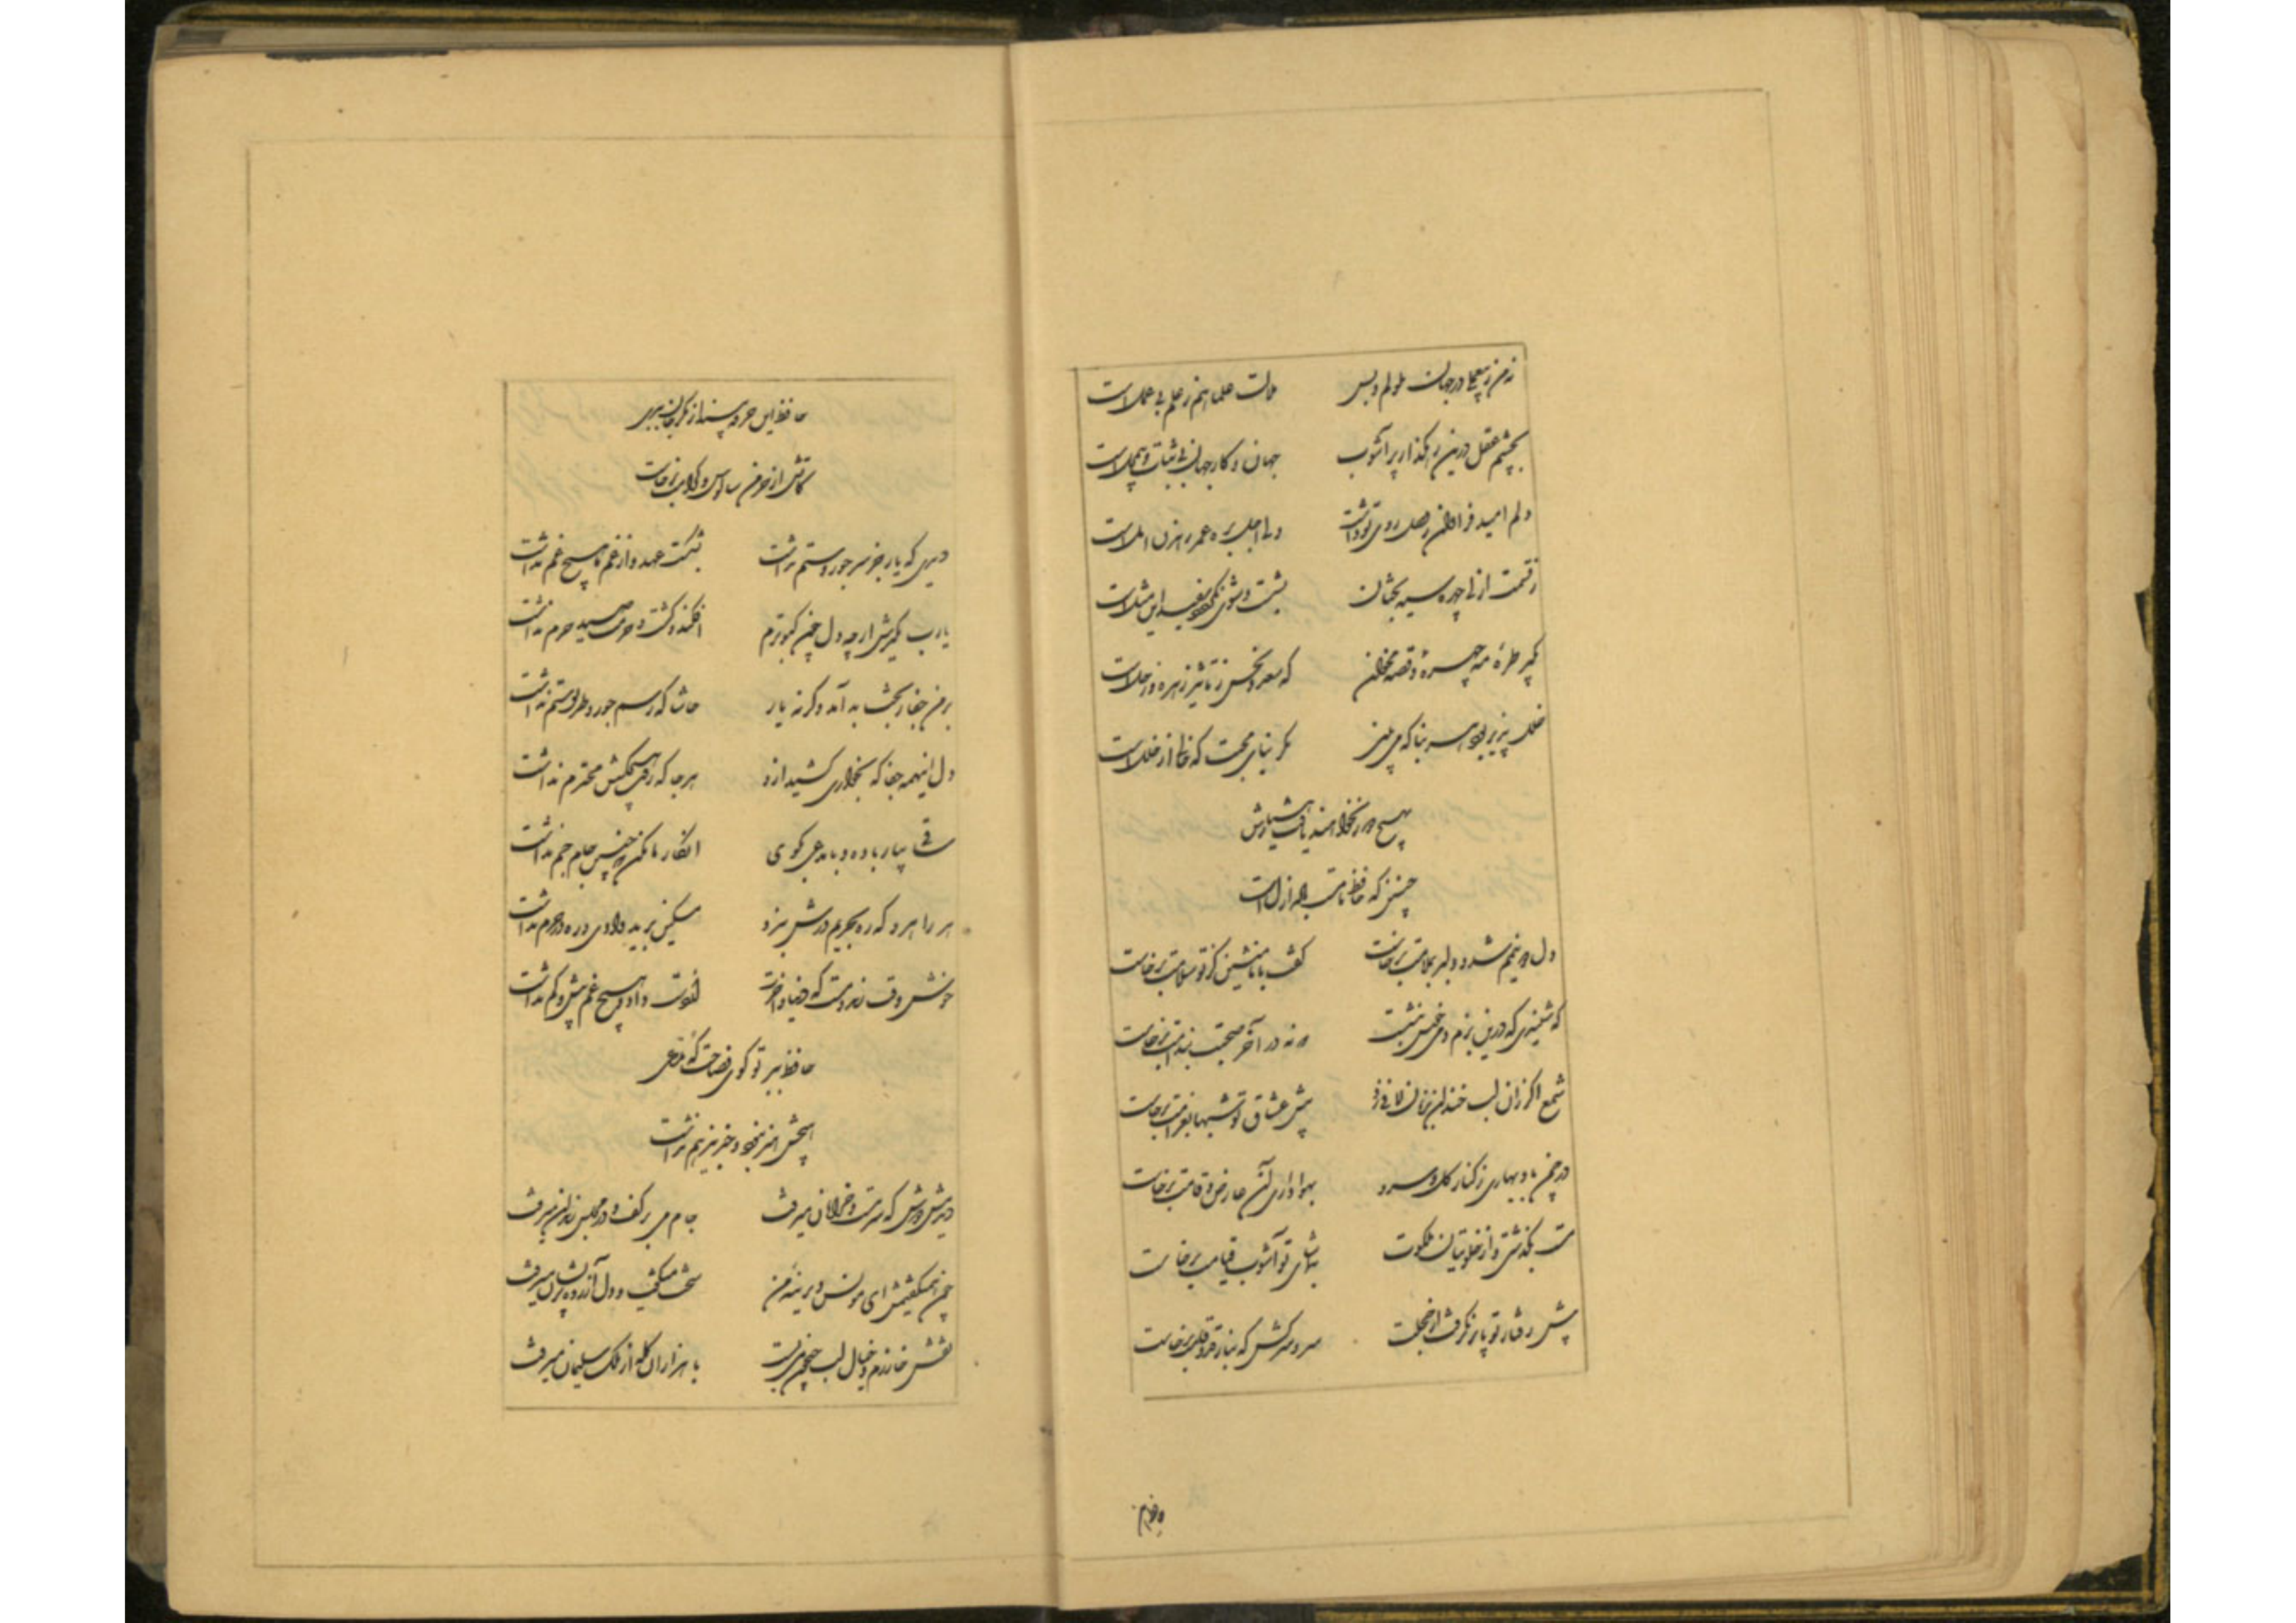 نه من ز بیعملی در جهان ملولم و بس ملالت علما هم ز علم بی عملست
بچشم عقل درین رهکذار پر آشوب جهان و کار جهان بی ثبات و بیمحلست
دلم امید فراوان ز وصل روی تو داشت ولی اجل بره عمر رهزن املست
ز قسمت ازلی چهره سیه بختان بشست و شوی نکردد سفید این مثلست
بگیر طره مه چهره و قصه مخوان که سعد و نحس ز تاثیر زهره و زحلست
خلل پذیر بود هر بنا که می بینی مکر بنای محبت که خالی از خللست
بهیچ دور نخواهند یافت هشیارش
چنین که حافظ ما مست باده ازلست
دل و دینم شد و دلبر بملامت برخاست کفت با ما منشین کز تو سلامت برخاست
که شنیدی که درین بزم دمی خوش بنشست که نه در آخر صحبت بندامت برخاست
شمع اکر زان لب خندان بزبان لافی زد پیش عشاق تو شبها بغرامت برخاست
در چمن باد بهاری ز کنار کل و سرو بهواداری آن عارض و قامت برخاست
مست بکذشتی و از خلوتیان ملکوت بتماشای تو آشوب قیامت برخاست
پیش رفتار تو پا برنکرفت از خجلت سرو سرکش که بناز قد و قامت برخاست
حافظ این خرقه بینداز مکر جان ببری
کاتش از خرمن سالوس و کرامت برخاست
دیدی که یار جز سر جور و ستم نداشت بشکست عهد و از غم ما هیچ غم نداشت
یارب مکیرش ار چه دل چون کبوترم افکند و کشت و حرمت صید حرم نداشت
بر من جفا ز بخت بد آمد وکرنه یار حاشا که رسم جور و طریق ستم نداشت
دل اینهمه جفا که بخواری کشید ازو هر جا که رفت هیچکسش محترم نداشت
ساقی بیار باده و با مدعی بکوی انکار ما مکن که چنین جام جم نداشت
هر راهرو که ره بحریم درش نبرد مسکین برید وادی و ره در حرم نداشت
خوش وقت رند مست که دنیا و آخرت از دست داد و هیچ غم بیش و کم نداشت
حافظ ببر تو کوی فصاحت که مدعی
هیچش هنر نبود و خبر نیز هم نداشت
دیدمش دوش که سرمست و خرامان میرفت جام می بر کف و در مجلس رندان میرفت
چون همیکفتمش ای مونس دیرینه من سخت میکفت و دل آزرده و پریشان میرفت
نقش خوارزم و خیال لب جیحون میبست با هزاران کله از ملک سلیمان میرفت